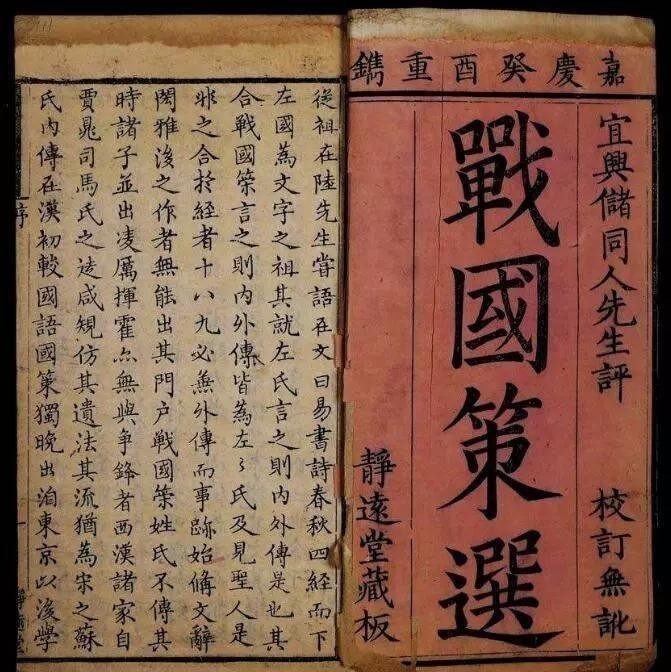 嘉慶癸酉重鐫
宜興儲同人先生評 校訂無訛
戰國策選
靜遠堂藏板
從祖在陸先生嘗語在文曰易書詩春秋四經而下
左國為文字之祖其就左氏言之則內外傳是也其
合戰國策言之則內外傳皆為左〻氏及見聖人是
非之合於經者十八九必無外傳而事跡始備文辭
閎雅後之作者無能出其門戶戰國策姓氏不傳其
時諸子並出凌厲揮霍亦無與爭鋒者西漢諸家自
賈晁司馬氏之徒咸規仿其遺法其流猶為宋之蘇
氏內傳在漢初較國語國策獨晚出洎東京以後學
序